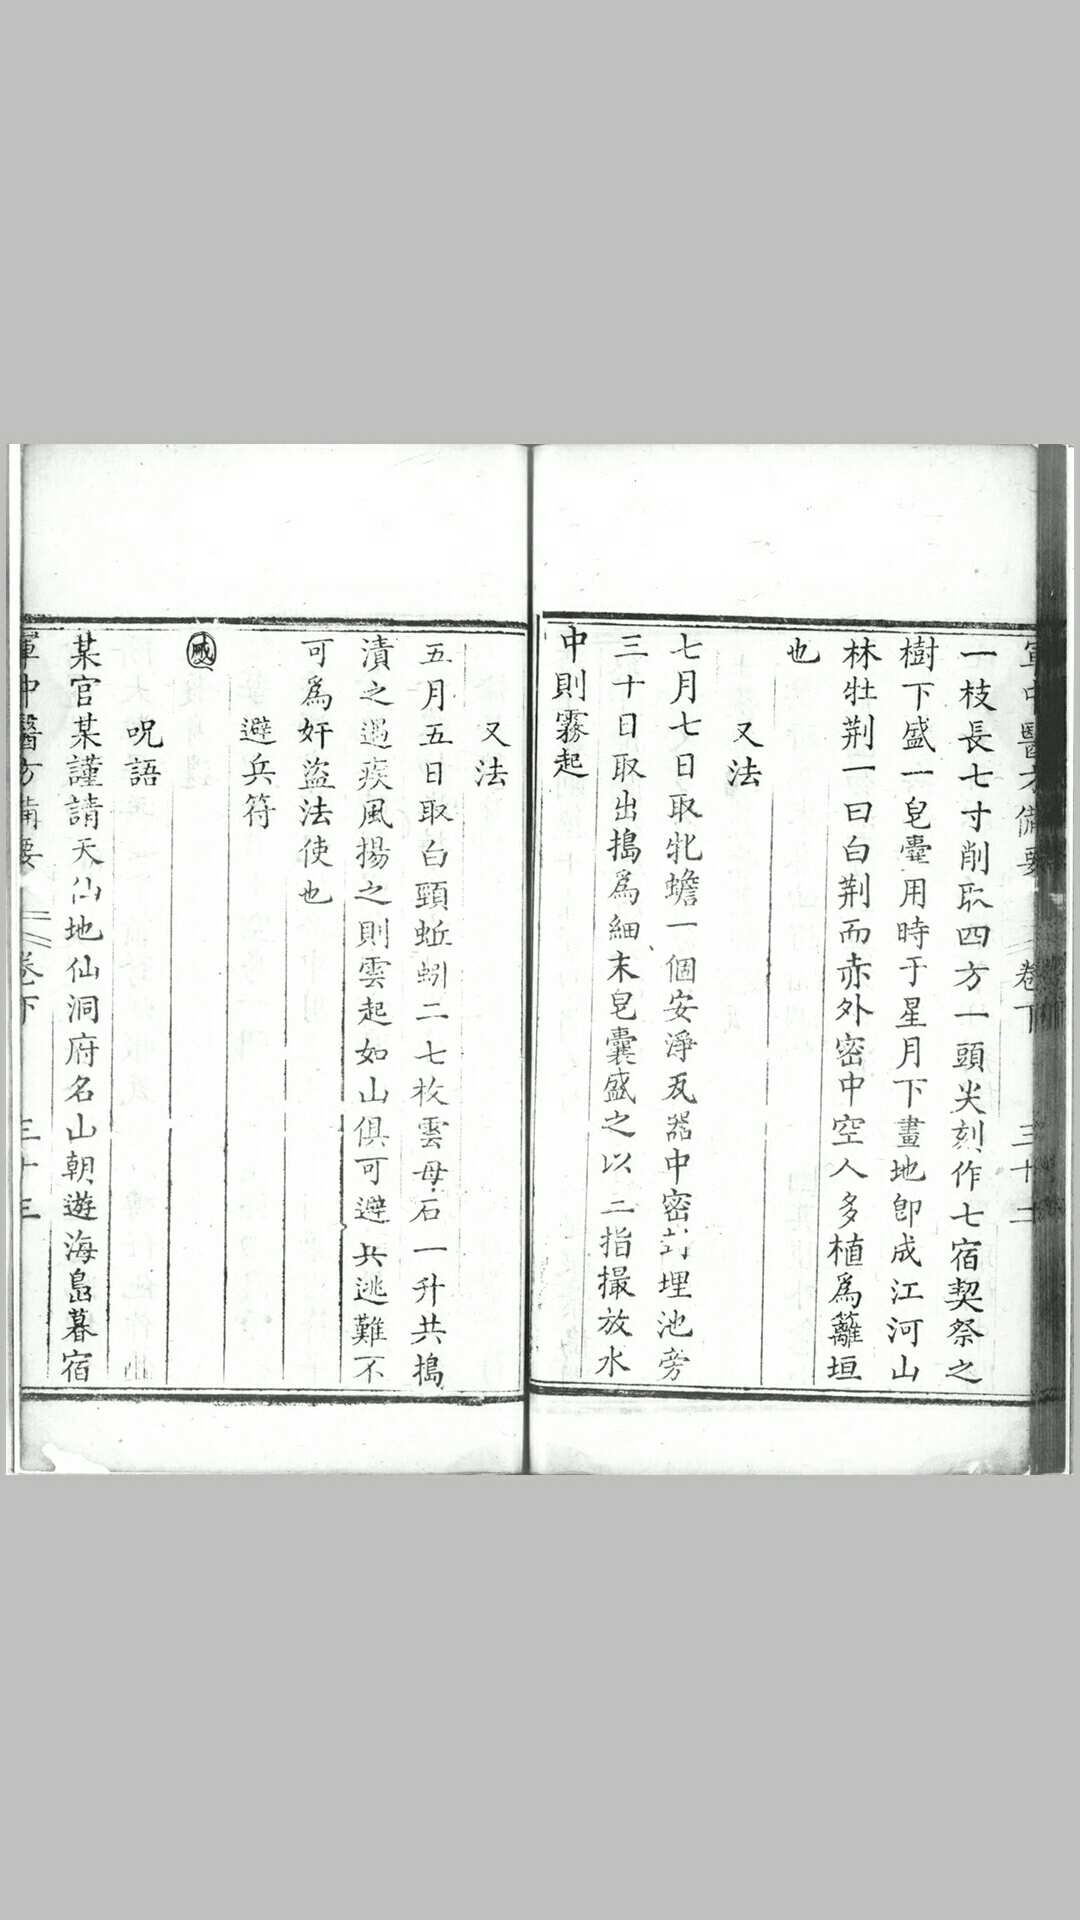 軍中醫方備要 卷下 三十二
一枝長七寸削取四方一頭尖刻作七宿契祭之
樹下盛一皂囊用時于星月下畫地卽成江河山
林牡荆一曰白荆而赤外密中空人多植爲籬垣
也
又法
七月七日取牝蟾一個安淨瓦器中密封埋池旁
三十日取出搗爲細末皂囊盛之以二指撮放水
中則霧起
又法
五月五日取白頸蚯蚓二七枚雲母石一升共搗
漬之遇疾風揚之則雲起如山俱可避兵逃難不
可爲奸盜法使也
避兵符
咒語
某官某謹請天仙地仙洞府名山朝遊海島暮宿
軍中醫方備要 卷下 三十三